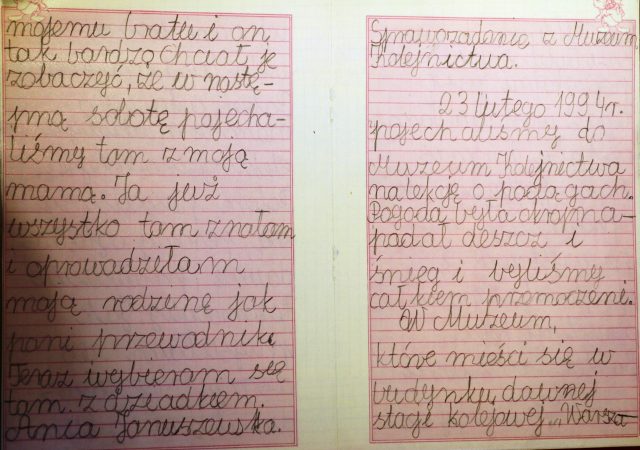 mojemu bratu i on
tak bardzo chciał je
zobaczyć, że w nastę-
pną sobotę pojecha-
liśmy tam z moją
mamą. Ja już
wszystko tam znałam
i oprowadziłam
moją rodzinę jak
pani przewodnik.
Teraz wybieram się
tam z dziadkiem.
Ania Januszewska.
Sprawozdanie z Muzeum
Kolejnictwa.
23 lutego 1994r.
pojechaliśmy do
Muzeum Kolejnictwa
na lekcję o pociągach.
Pogoda była okropna-
padał deszcz i
śnieg i byliśmy
całkiem przemoczeni.
W Muzeum,
które mieści się w
budynku dawnej
stacji kolejowej „Warsza-